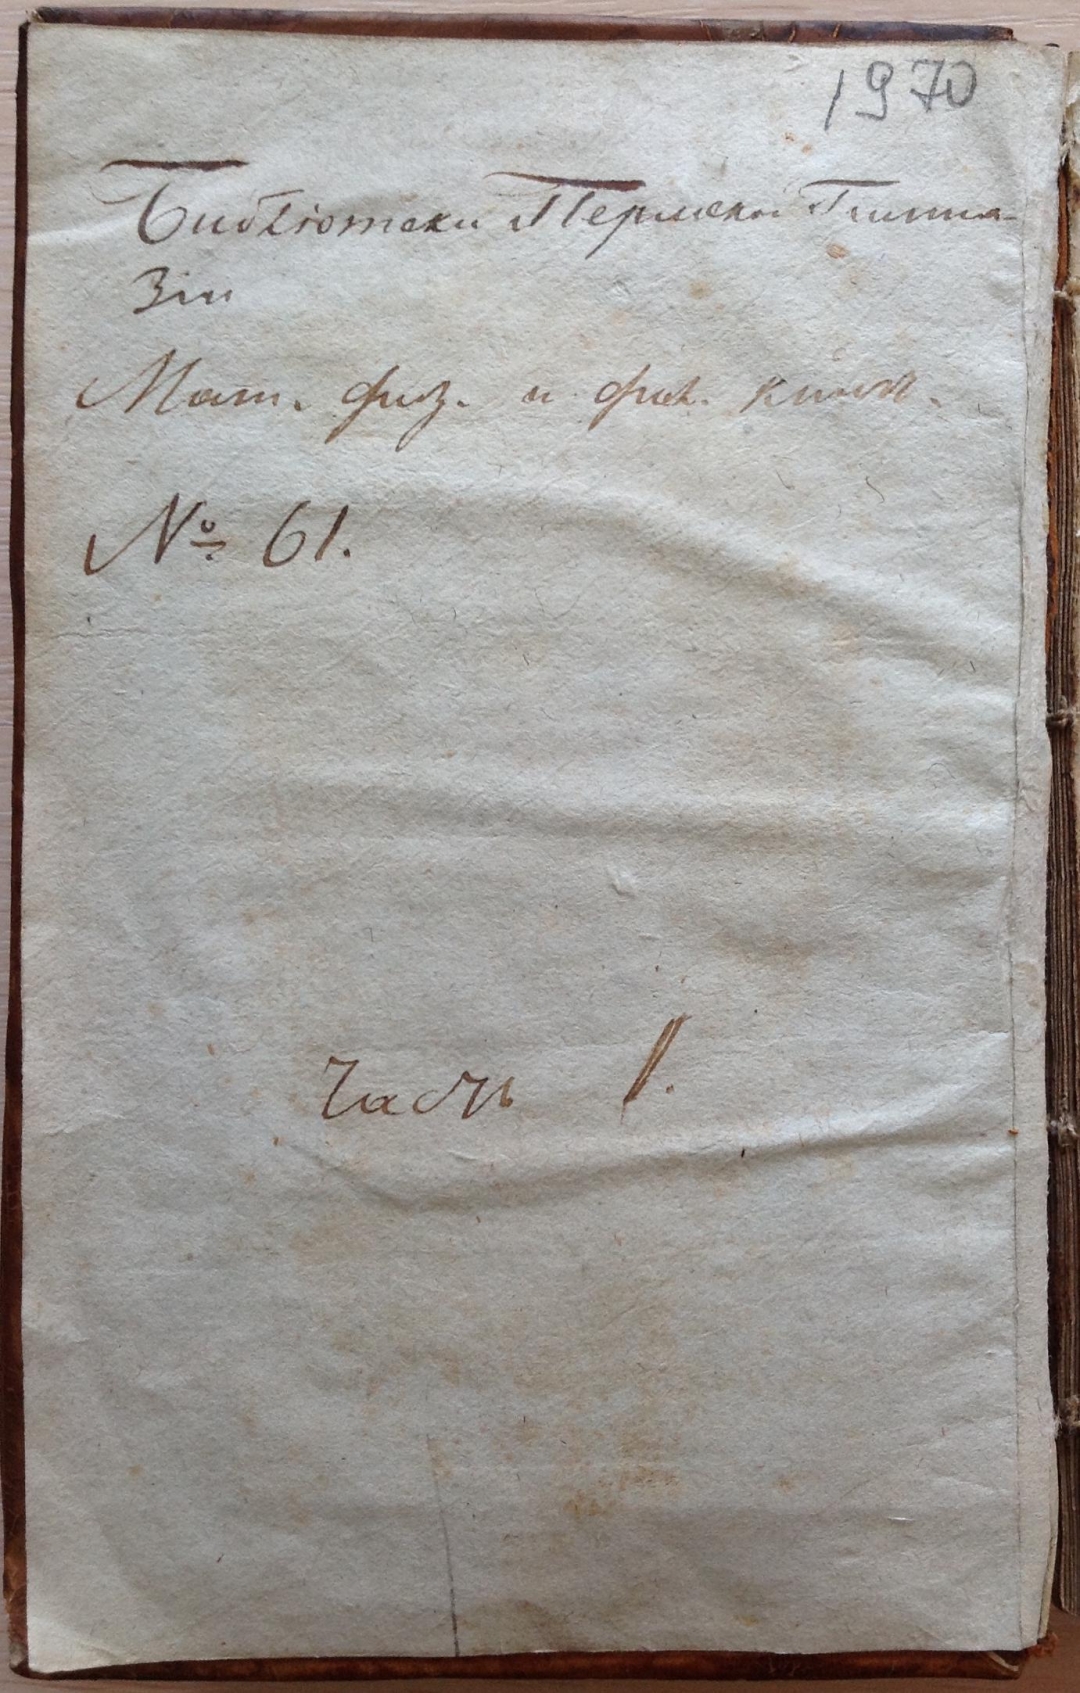 1970
Библіотеки Пермской Гимна-
зіи
Мат. физ. и фил. книг.
№ 61.
часть 1.